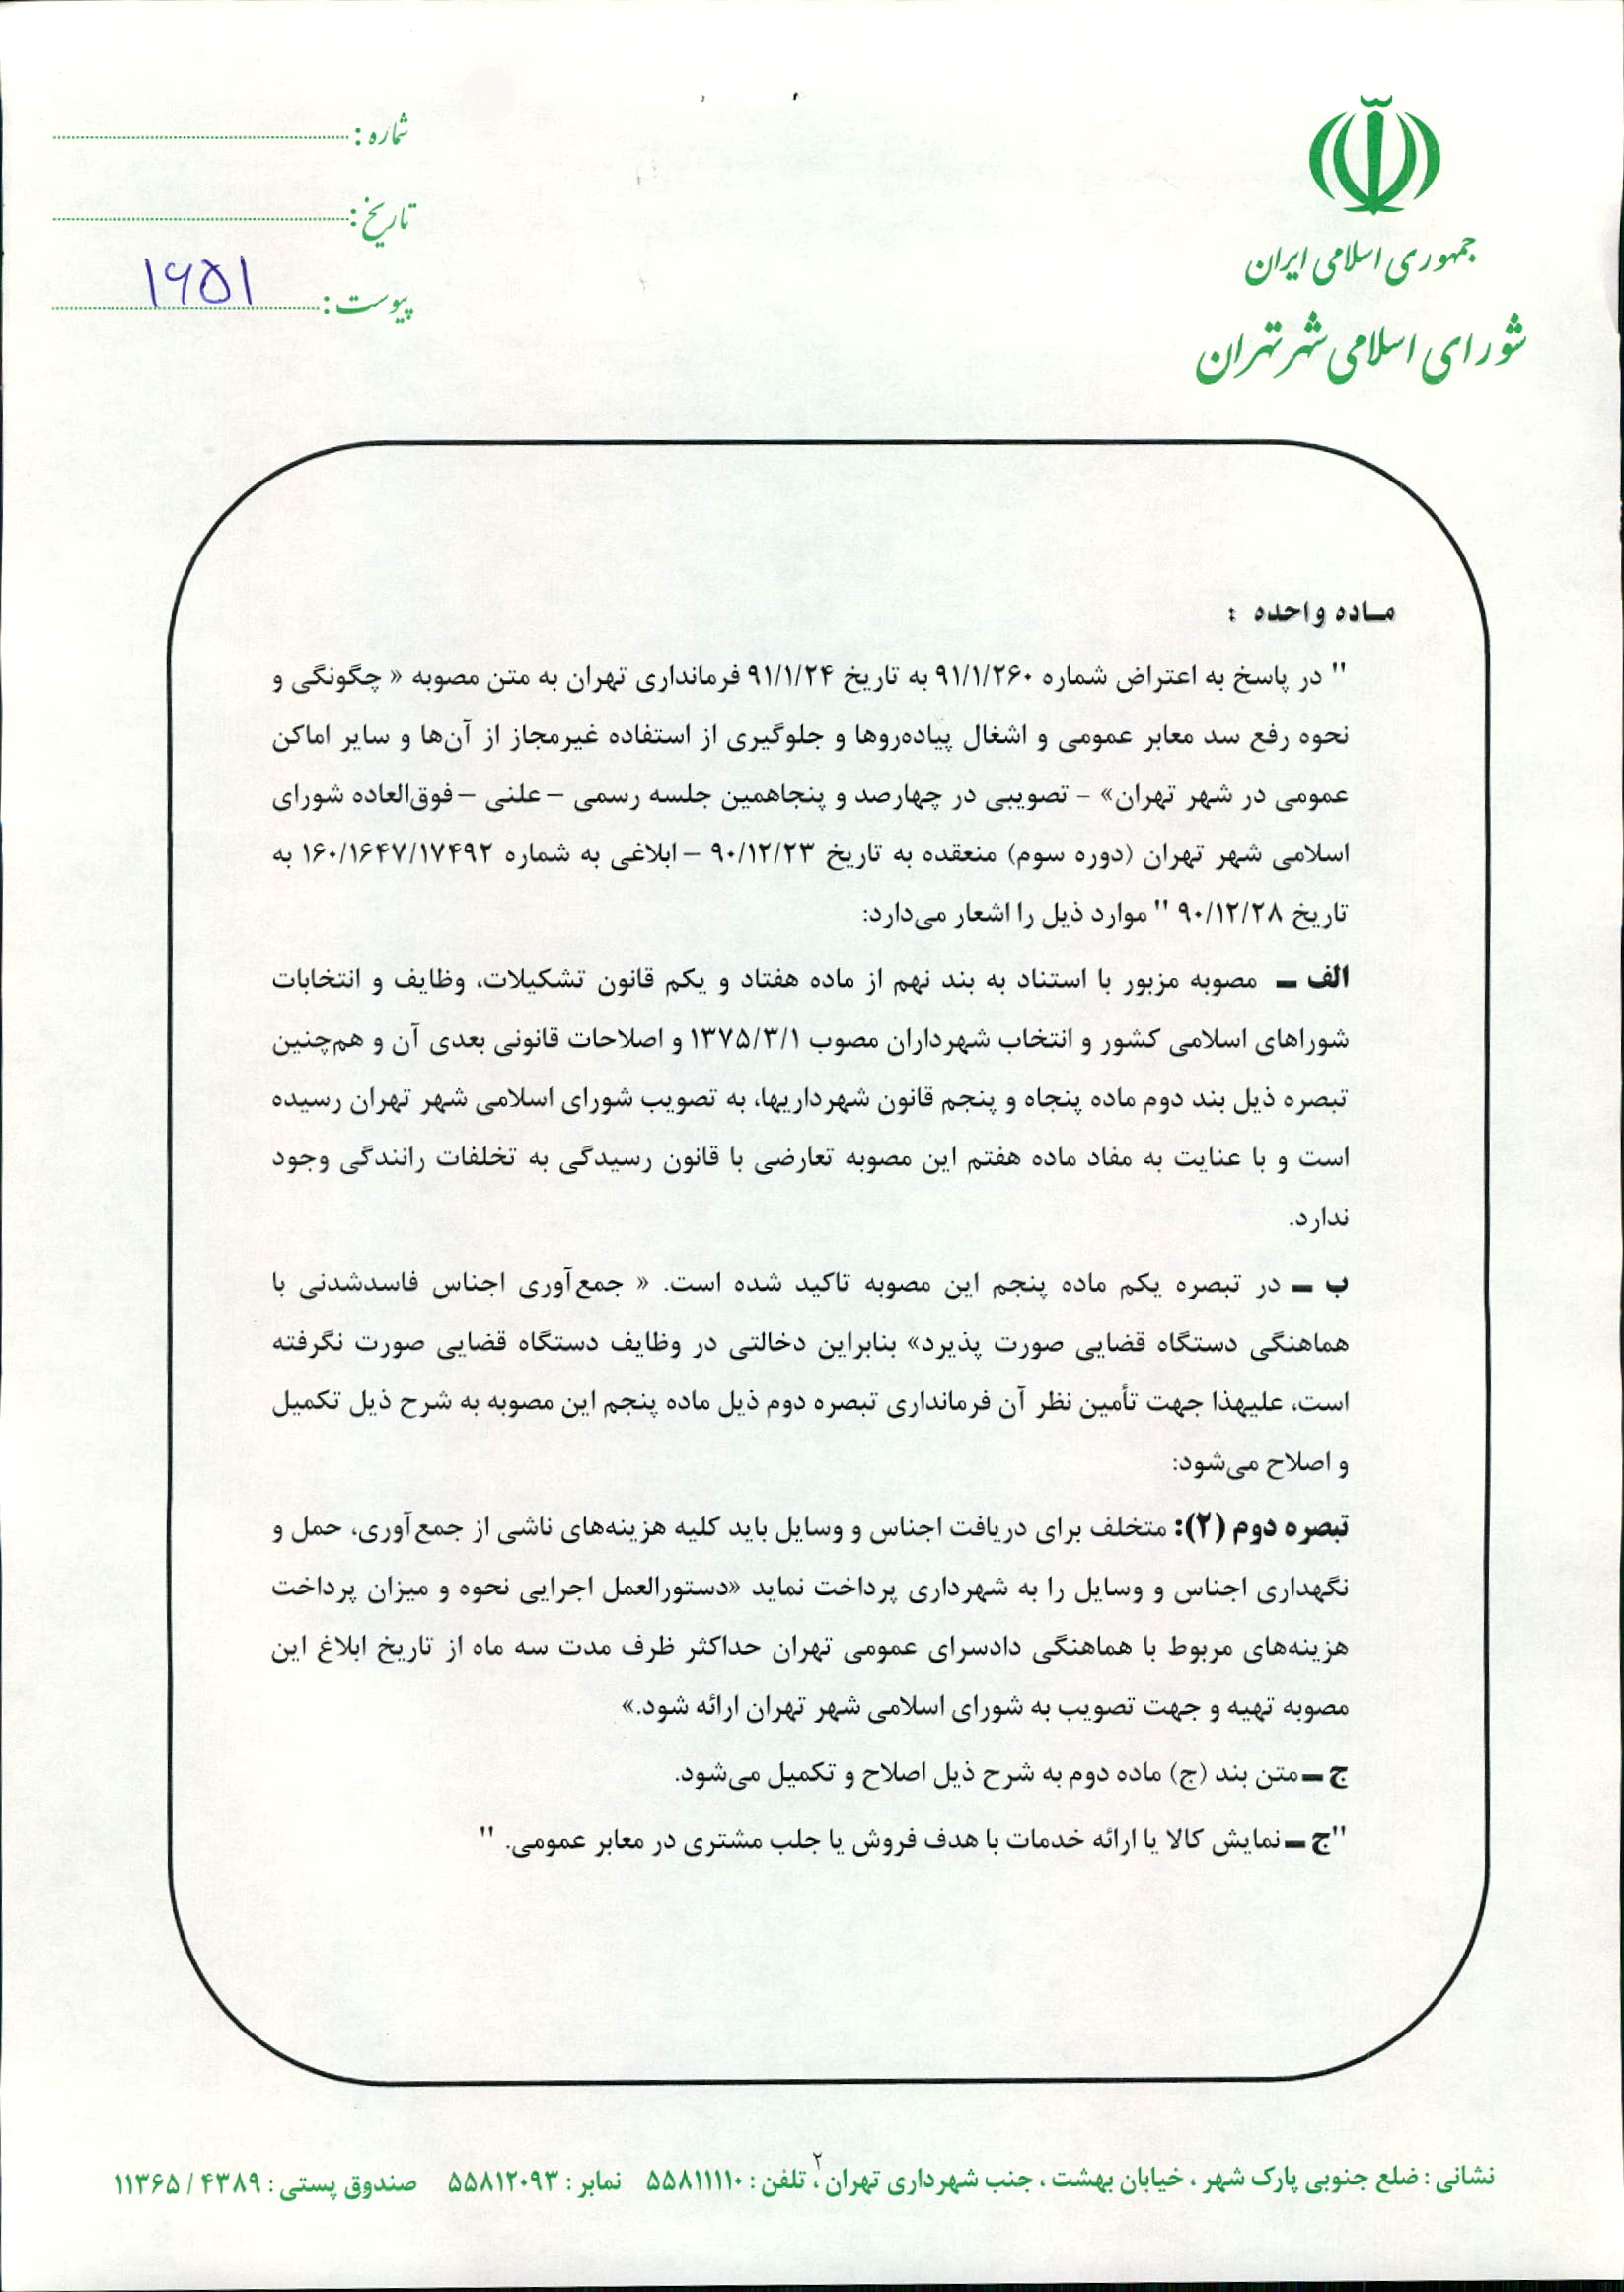 جمهوری اسلامی ایران
شورای اسلامی شهر تهران
شماره :
تاریخ :
پیوست : ۱۶۵۱
مـاده واحده :
" در پاسخ به اعتراض شماره ۹۱/۱/۲۶۰ به تاریخ ۹۱/۱/۲۴ فرمانداری تهران به متن مصوبه « چگونگی و
نحوه رفع سد معابر عمومی و اشغال پیاده‌روها و جلوگیری از استفاده غیرمجاز از آن‌ها و سایر اماکن
عمومی در شهر تهران» – تصویبی در چهارصد و پنجاهمین جلسه رسمی – علنی – فوق‌العاده شورای
اسلامی شهر تهران (دوره سوم) منعقده به تاریخ ۹۰/۱۲/۲۳ – ابلاغی به شماره ۱۶۰/۱۶۴۷/۱۷۴۹۲ به
تاریخ ۹۰/۱۲/۲۸ " موارد ذیل را اشعار می‌دارد:
الف – مصوبه مزبور با استناد به بند نهم از ماده هفتاد و یکم قانون تشکیلات، وظایف و انتخابات
شوراهای اسلامی کشور و انتخاب شهرداران مصوب ۱۳۷۵/۳/۱ و اصلاحات قانونی بعدی آن و هم‌چنین
تبصره ذیل بند دوم ماده پنجاه و پنجم قانون شهرداریها، به تصویب شورای اسلامی شهر تهران رسیده
است و با عنایت به مفاد ماده هفتم این مصوبه تعارضی با قانون رسیدگی به تخلفات رانندگی وجود
ندارد.
ب – در تبصره یکم ماده پنجم این مصوبه تاکید شده است. « جمع‌آوری اجناس فاسدشدنی با
هماهنگی دستگاه قضایی صورت پذیرد» بنابراین دخالتی در وظایف دستگاه قضایی صورت نگرفته
است، علیهذا جهت تأمین نظر آن فرمانداری تبصره دوم ذیل ماده پنجم این مصوبه به شرح ذیل تکمیل
و اصلاح می‌شود:
تبصره دوم (۲): متخلف برای دریافت اجناس و وسایل باید کلیه هزینه‌های ناشی از جمع‌آوری، حمل و
نگهداری اجناس و وسایل را به شهرداری پرداخت نماید «دستورالعمل اجرایی نحوه و میزان پرداخت
هزینه‌های مربوط با هماهنگی دادسرای عمومی تهران حداکثر ظرف مدت سه ماه از تاریخ ابلاغ این
مصوبه تهیه و جهت تصویب به شورای اسلامی شهر تهران ارائه شود.»
ج – متن بند (ج) ماده دوم به شرح ذیل اصلاح و تکمیل می‌شود.
"ج – نمایش کالا یا ارائه خدمات با هدف فروش یا جلب مشتری در معابر عمومی. "
۲
نشانی : ضلع جنوبی پارک شهر ، خیابان بهشت ، جنب شهرداری تهران ، تلفن : ۵۵۸۱۱۱۱۰ نمابر : ۵۵۸۱۲۰۹۳ صندوق پستی : ۴۳۸۹ / ۱۱۳۶۵